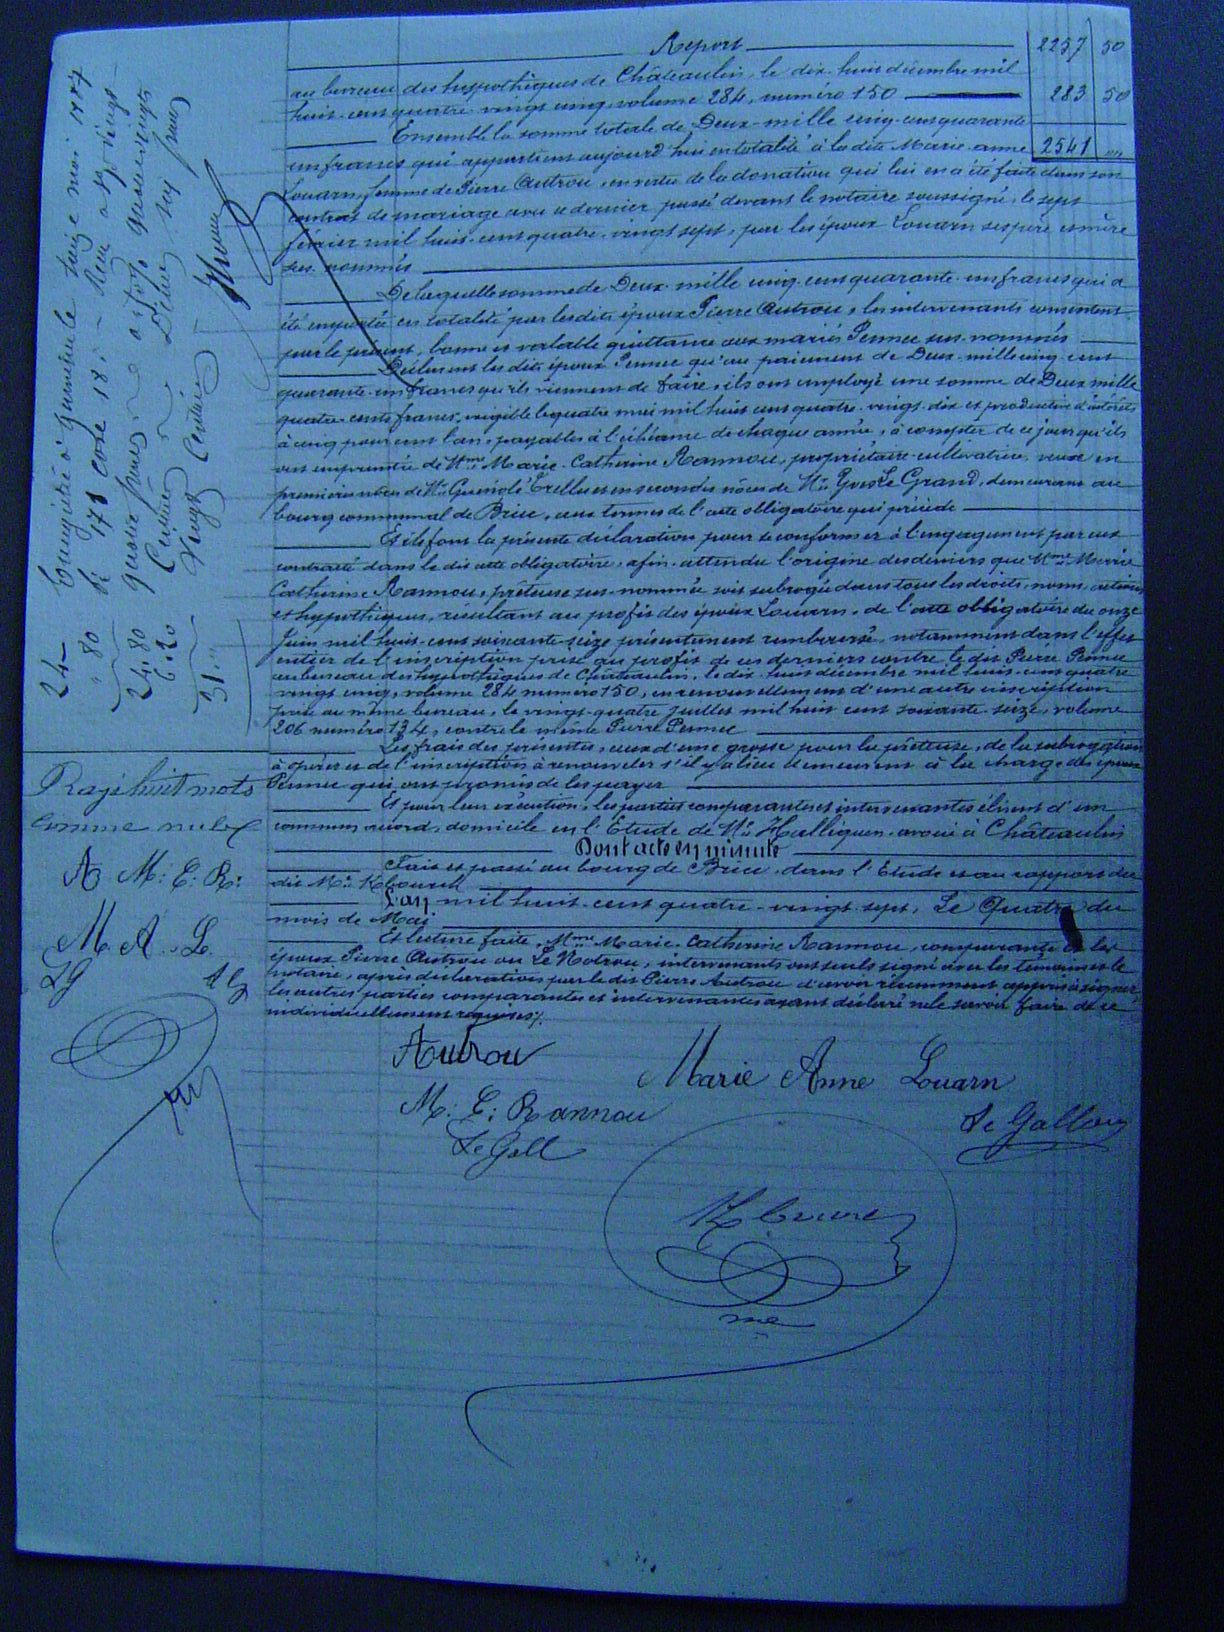 Report 2257 50
au bureau des hypothèques de Châteaulin, le dix-huit décembre mil
huit-cent quatre-vingt cinq, volume 284, numéro 150 283 50
Ensemble la somme totale de Deux-mille cinq-cent quarante
un francs qui appartient aujourd'hui en totalité à la dite Marie-anne 2541 "
Louarn, femme de Pierre Autrou, en vertu de la donation qui lui en a été faite dans son
contrat de mariage avec ce dernier passé devant le notaire soussigné, le sept
février mil huit-cent quatre-vingt sept, par les époux Louarn ses père et mère
sus-nommés
De laquelle somme de Deux-mille cinq-cent quarante-un francs qui a
été emportée en totalité par lesdits époux Pierre Autrou, les intervenants consentent
par le présent, bonne et valable quittance aux mariés Pennec sus-nommés
Déclarent les dits époux Pennec qu'au paiement de Deux-mille cinq-cent
quarante-un francs qu'ils viennent de faire, ils ont employé une somme de Deux mille
quatre-cents francs, exigible le quatre mai mil huit cent quatre-vingt-dix et productive d'intérêts
à cinq pour cent l'an, payables à l'échéance de chaque année, à compter de ce jour qu'ils
ont empruntée de Mme Marie-Catherine Rannou, propriétaire-cultivatrice, veuve en
premières noces de Mr Guénolé Crellu et en secondes noces de Mr Yves Le Grand, demeurant au
bourg communal de Briec, aux termes de l'acte obligatoire qui précède
Et ils font la présente déclaration pour se conformer à l'engagement par eux
contracté dans le dit acte obligatoire, afin, attendu l'origine des deniers que Mme Marie
Catherine Rannou, prêteuse sus-nommée soit subrogée dans tous les droits, noms, actions
et hypothèques, résultant au profit des époux Louarn, de l'acte obligatoire du onze
Juin mil huit-cent soixante-seize présentement remboursé, notamment dans l'effet
entier de l'inscription prise au profit de ces derniers contre le dit Pierre Pennec
au bureau des hypothèques de Châteaulin, le dix-huit décembre mil huit-cent quatre
vingt cinq, volume 284 numéro 150, en renouvellement d'une autre inscription
prise au même bureau, le vingt-quatre juillet mil huit cent soixante-seize, volume
206 numéro 134, contre le même Pierre Pennec
Les frais des présentes, ceux d'une grosse pour la prêteuse, de la subrogation
à opérer et de l'inscription à renouveler s'il y a lieu demeurent à la charge des époux
Pennec qui ont promis de les payer
Et pour leur exécution, les parties comparantes et intervenantes élisent d'un
commun accord, domicile en l'Etude de Me Halléguen avoué à Châteaulin
Dont acte en minute
Fait et passé au bourg de Briec, dans l'Etude et au rapport du
dit Me
L'an mil huit-cent quatre-vingt-sept, Le Quatre du
mois de Mai
Et lecture faite, Mme Marie-Catherine Rannou, comparante et les
époux Pierre Autrou ou Le Notrou, intervenants ont seuls signé avec les témoins et le
notaire, après déclaration par le dit Pierre Autrou d'avoir récemment appris à signer
les autres parties comparantes et intervenantes ayant déclaré ne le savoir faire de ce
individuellement requises /.
Autrou
Marie Anne Louarn
M. C: Rannou
Le Gall
Le Gallou
Enregistré à Quimper le seize mai 1887
Reçu
24 "
" 80
24,80
6.20
31 "
Rayé huit mots
comme nuls
A M: C: R:
M. A. L.
LG